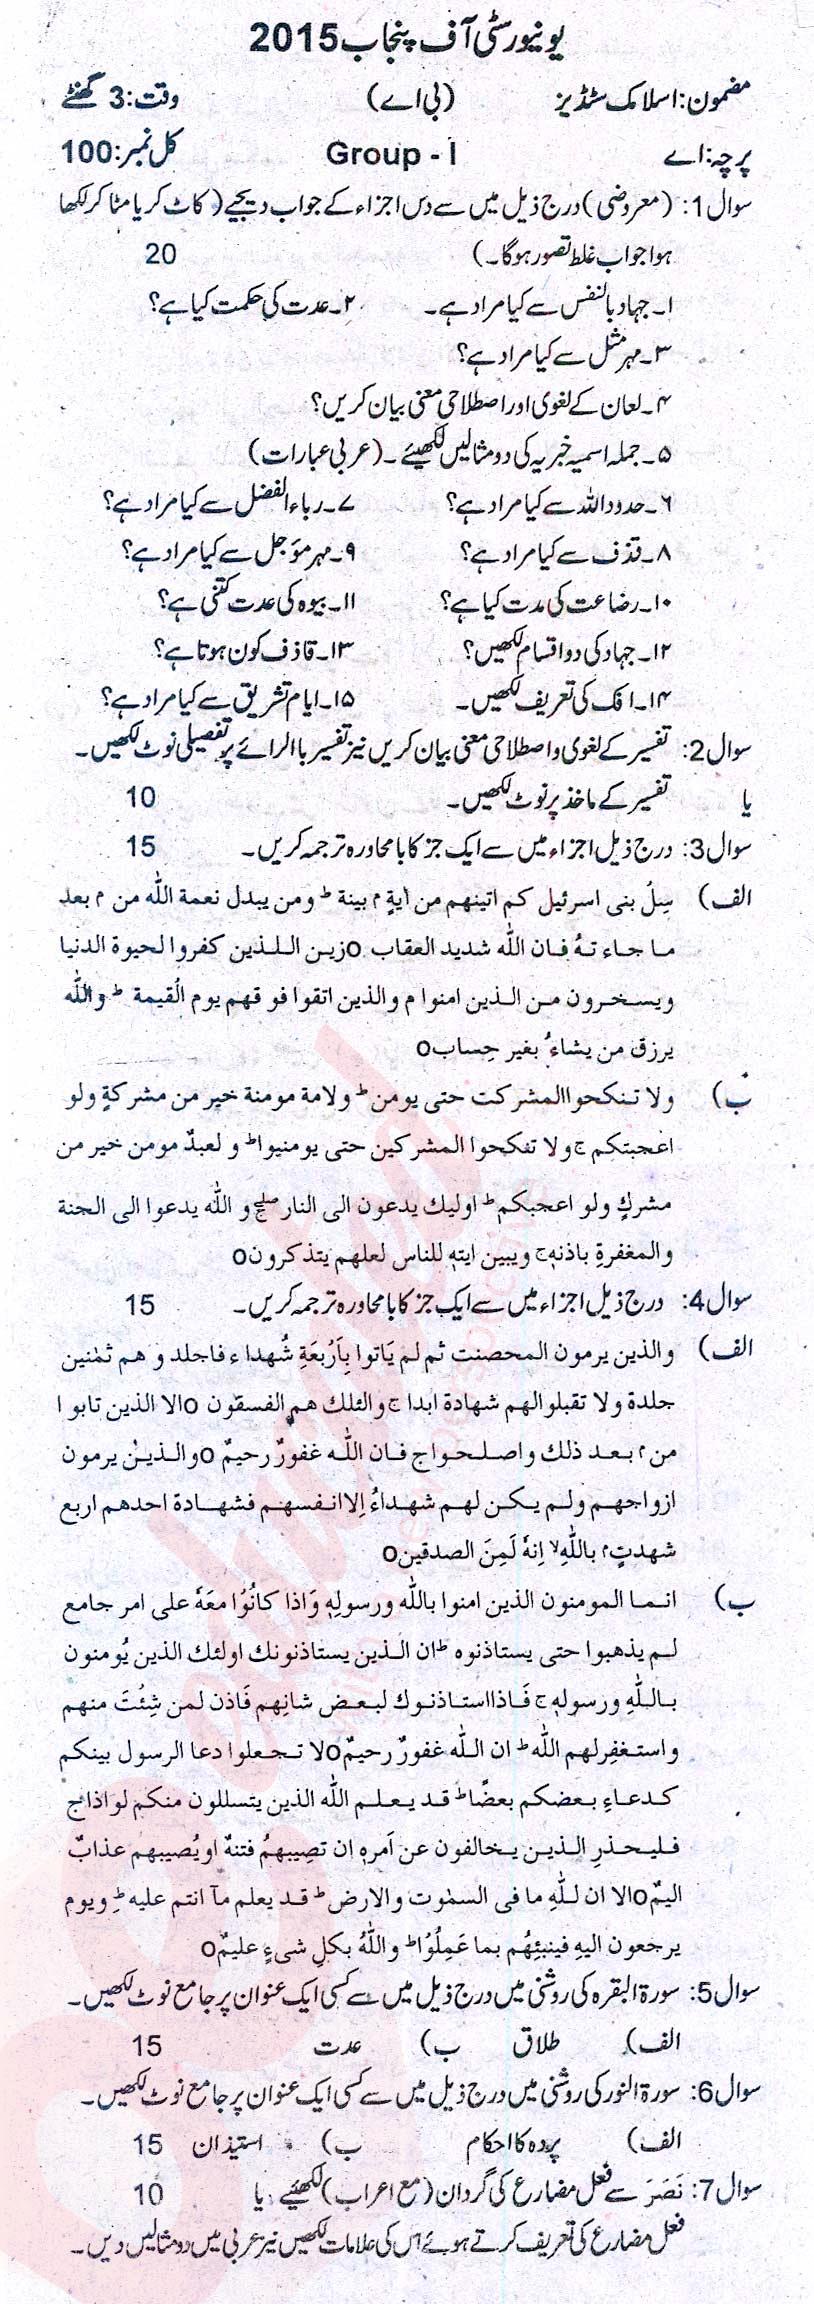 یونیورسٹی آف پنجاب 2015
مضمون: اسلامک سٹڈیز (بی اے) وقت: 3 گھنٹے
پرچہ: اے Group - I کل نمبر: 100
سوال 1: (معروضی) درج ذیل میں سے دس اجزاء کے جواب دیجیے (کاٹ کر یا مٹا کر لکھا
ہوا جواب غلط تصور ہوگا۔) 20
۱۔ جہاد بالنفس سے کیا مراد ہے۔ ۲۔ عدت کی حکمت کیا ہے؟
۳۔ مہر مثل سے کیا مراد ہے؟
۴۔ لعان کے لغوی اور اصطلاحی معنی بیان کریں؟
۵۔ جملہ اسمیہ خبریہ کی دو مثالیں لکھیئے۔ (عربی عبارات)
۶۔ حدود اللہ سے کیا مراد ہے؟ ۷۔ رباء الفضل سے کیا مراد ہے؟
۸۔ قذف سے کیا مراد ہے؟ ۹۔ مہر مؤجل سے کیا مراد ہے؟
۱۰۔ رضاعت کی مدت کیا ہے؟ ۱۱۔ بیوہ کی عدت کتنی ہے؟
۱۲۔ جہاد کی دو اقسام لکھیں؟ ۱۳۔ قاذف کون ہوتا ہے؟
۱۴۔ افک کی تعریف لکھیں۔ ۱۵۔ ایام تشریق سے کیا مراد ہے؟
سوال 2: تفسیر کے لغوی و اصطلاحی معنی بیان کریں نیز تفسیر باالرائے پر تفصیلی نوٹ لکھیں۔
یا تفسیر کے ماخذ پر نوٹ لکھیں۔ 10
سوال 3: درج ذیل اجزاء میں سے ایک جز کا بامحاورہ ترجمہ کریں۔ 15
الف) سِلُ بنی اسرئیل کم اتینهم من اٰیةٍ م بینة ط ومن یبدل نعمة اللّٰه من م بعد
ما جاء تهُ فان اللّٰه شدید العقاب o زین الـلـذین کفروا لحیوة الدنیا
ویسخرون من الذین امنوا م والذین اتقوا فوقهم یوم القیمة ط واللّٰه
یرزق من یشاءُ بغیر حِساب o
ب) ولا تنکحوا المشرکت حتی یومن ط ولامة مومنة خیر من مشرکةٍ ولو
اعجبتکم ج ولا تفکحوا المشرکین حتی یومنیوا ط و لعبدٌ مومن خیر من
مشركٍ ولو اعجبکم ط اولیك یدعون الی النار صلے ج و اللّٰه یدعوا الی الجنة
والمغفرةِ باذنهٖ ج ویبین ایتهٖ للناس لعلهم یتذکرون o
سوال 4: درج ذیل اجزاء میں سے ایک جز کا بامحاورہ ترجمہ کریں۔ 15
الف) والذین یرمون المحصنت ثم لم یَاتوا بِاَرْبعَةِ شُهداء فاجلد و هم ثمٰنین
جلدة ولا تقبلوالهم شهادة ابدا ج والئلك هم الفسقون o الا الذین تابوا
من م بعد ذلك واصلحواج فان اللّٰه غفورٌ رحیمٌ o والذین یرمون
ازواجهم ولم یکن لهم شهداءُ اِلا انفسهم فشهادة احدهم اربع
شهدتٍ م باللّٰهِ لا اِنهٗ لَمِنَ الصدقین o
ب) انما المومنون الذین امنوا باللّٰه ورسولهٖ وَاذا کانُوْا معَهٗ علی امر جامع
لم یذهبوا حتی یستاذنوه ط ان الذین یستاذنونك اولئك الذین یُومنون
باللّٰهِ ورسولهٖ ج فَاذا استاذنوك لبعض شانِهم فَاذن لمن شِئْتَ منهم
واستغفرلهم اللّٰه ط ان اللّٰه غفورٌ رحیمٌ o لا تجعلوا دعا الرسول بینکم
کدعاءِ بعضکم بعضًا ط قد یعلم اللّٰه الذین یتسللون منکم لواذاج
فلیحذرِ الذین یخالفون عن اَمرهٖ ان تصِیبهمُ فتنهٌ اویُصیبهم عذابٌ
الیمٌ o الا ان للّٰهِ ما فی السمٰوت والارض ط قد یعلم مآ انتم علیه ط ویوم
یرجعون الیهِ فینبئِهُم بما عَمِلُوْا ط واللّٰهُ بکلِ شیءٍ علیمٌ o
سوال 5: سورۃ البقرہ کی روشنی میں درج ذیل میں سے کسی ایک عنوان پر جامع نوٹ لکھیں۔
الف) طلاق ب) عدت 15
سوال 6: سورۃ النور کی روشنی میں درج ذیل میں سے کسی ایک عنوان پر جامع نوٹ لکھیں۔
الف) پردہ کا احکام ب) استیذان 15
سوال 7: نَصَرَ سے فعل مضارع کی گردان (مع اعراب) لکھیئے یا 10
فعل مضارع کی تعریف کرتے ہوئے اس کی علامات لکھیں نیز عربی میں دو مثالیں دیں۔